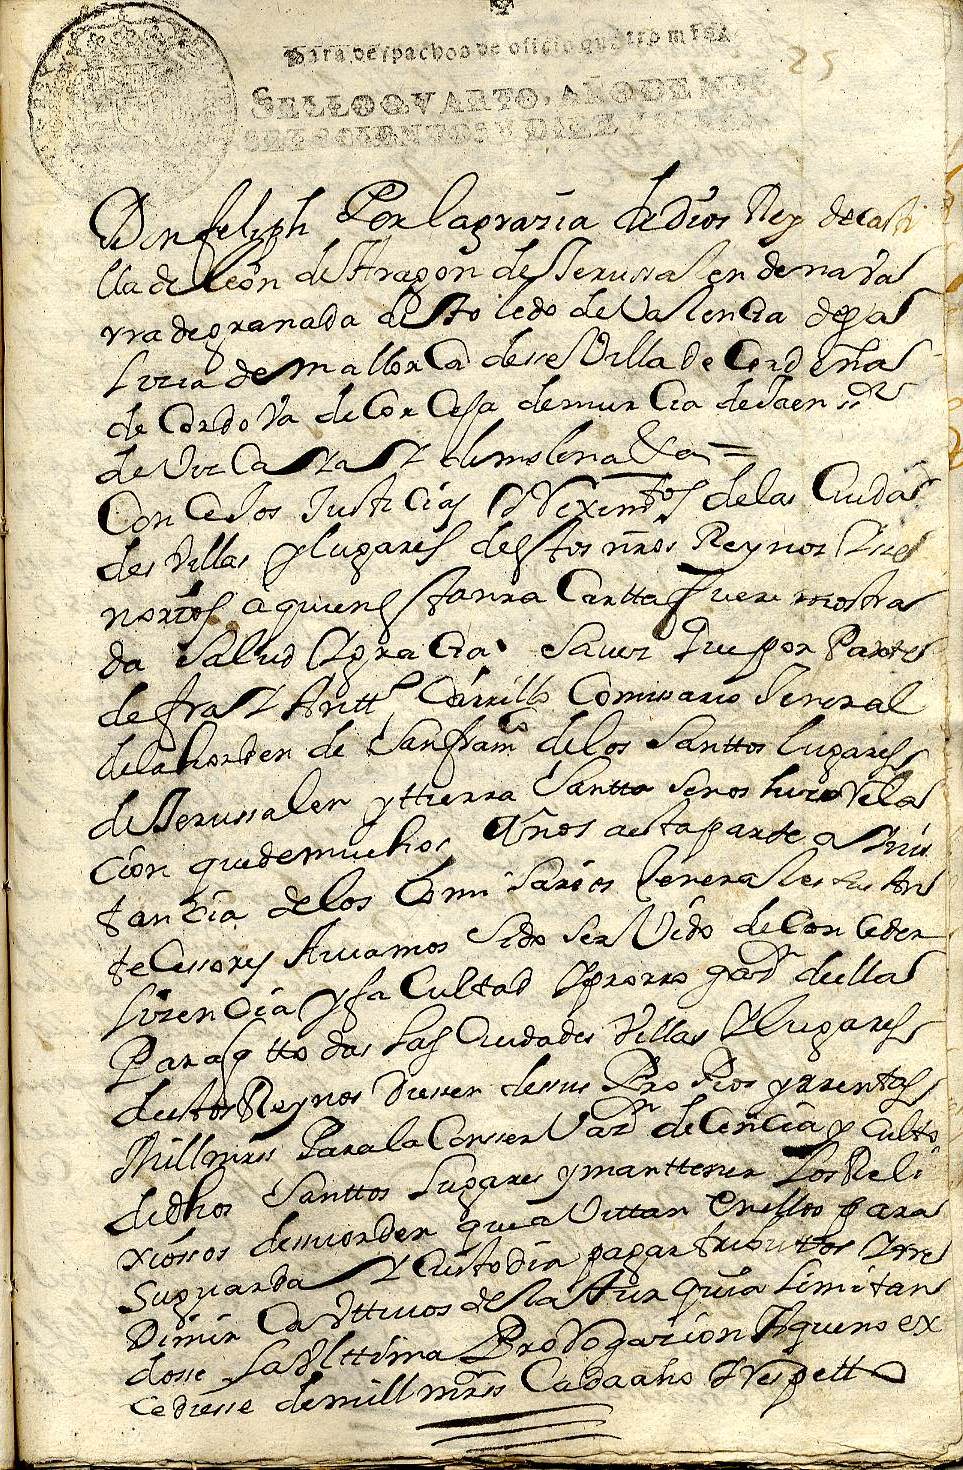 Para despachos de oficio quatro mrs
25
SELLO QVARTO, AÑO DE MIL
SETECIENTOS Y DIEZ Y
Don feliph Por la grazia de Dios Rey de casti
lla de Leon de Aragon de Jerussalen de nava
rra de granada de Toledo de Valencia de ga
lizia de mallorca de seVilla de Cerdeña
de CordoVa de Corcega de murcia de Jaen sr
de Vizcaya y de molina &a =
Concejos Justicias y Reximtos de las Ciuda
des Villas y lugares destos nros Reynos y se
norios a quienes esta nra Cartta fuere mostra
da Salud y gracia Saved que por Parte
de fray Antto Carrillo Comissario Jeneral
de la horden de San franco de los Santtos lugares
de Jerussalen y ttierra Santta se nos hizo Rela
cion que de muchos años a esta parte a Ynis
tancia de los Comisarios Jenerales sus An
tecessores Aviamos sido serVido de Conceder
lizencia y facultad y prorrogazn della
Para q ttodas las Ciudades Villas y lugares
destos Reynos diessen de sus ProPios y rrentas
mill mrs Para la ConserVazn decencia y Culto
de dhos Santtos lugares y manttener los Reli
xiossos de su orden que aVittan en ellos para
su guarda y Custodia pagar tributos y rre
dimir Cauttivos de la Turquia limitan
dosse la Ulttima Prorrogazion A que no ex
cediesse de mill mrs Cada año y respetto